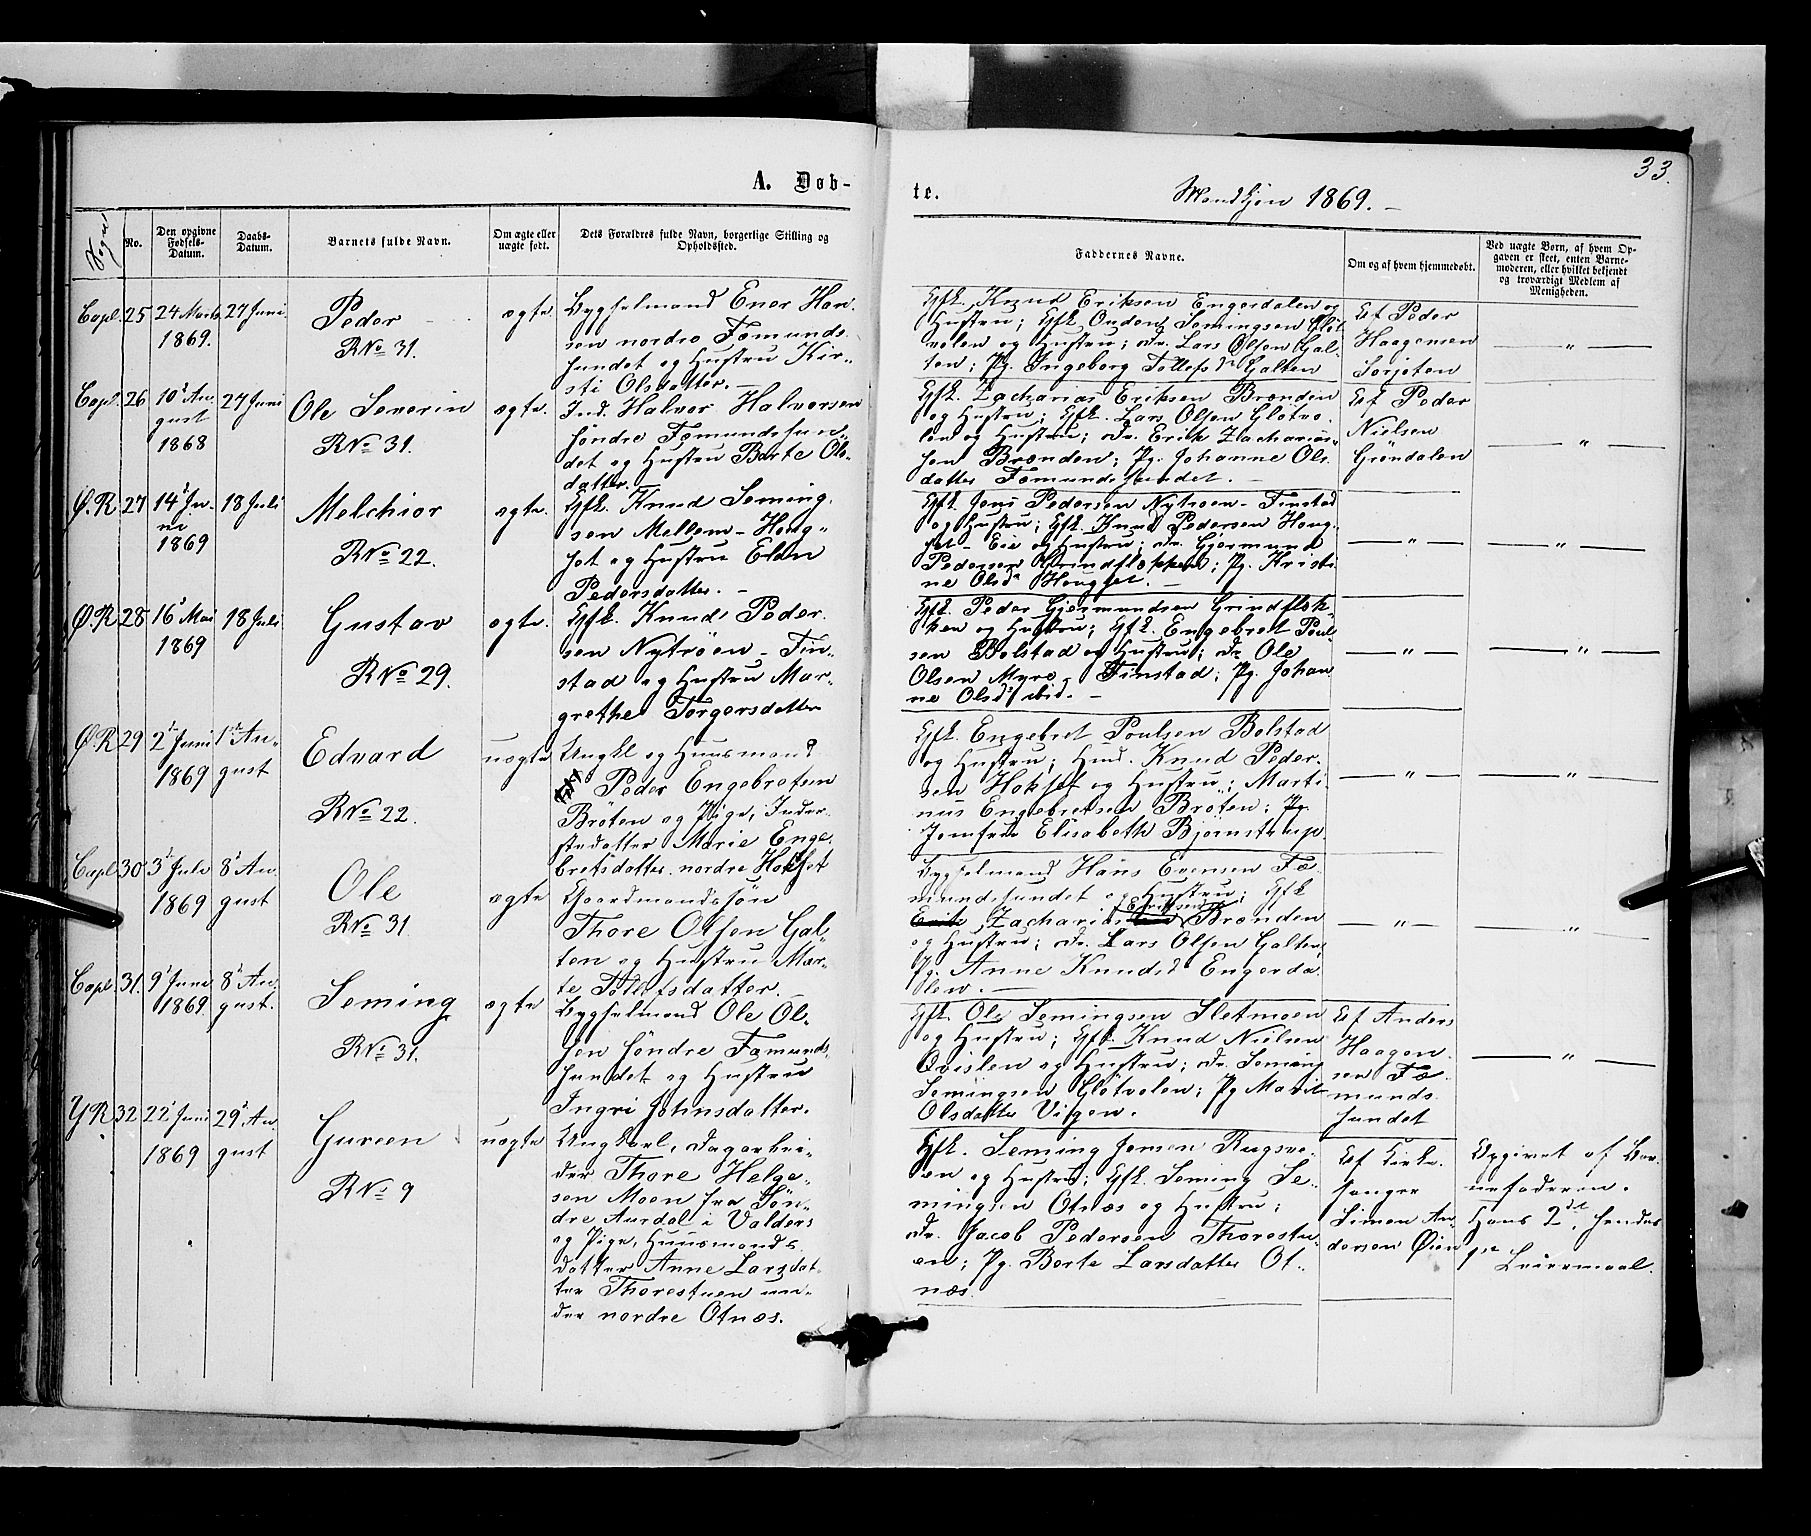 33.
A. Døb-
te.
Mandkjøn 1869. –
Sogne
No.
Den opgivne Fødsels-Datum.
Daabs-Datum.
Barnets fulde Navn.
Om ægte eller uægte født.
Dets Forældres fulde Navn, borgerlige Stilling og Opholdssted.
Faddernes Navne.
Om og af hvem hjemmedøbt.
Ved uægte Børn, af hvem Opgaven er skeet, enten Barnemoderen, eller hvilket bekjendt og troværdigt Medlem af Menigheden.
Capl. 25 24 Marts 1869. 27 Juni
Peder
R No 31.
ægte.
Bygselmand Ener Han-
sen nordre Fæmunds-
sundet og Hustru Kir-
sti Olsdatter. –
Gfk. Knud Eriksen Engerdalen og
Hustru; Gfk. Ouden Semingsen Gløt-
volen og Hustru; Dr. Lars Olsen Gal-
ten; Pg. Ingeborg Tollefsdr Galten
Af Peder
Haagensen
Sorjoten
— " —
Capl. 26 10de August 1868 27 Juni
Ole Severin
R No 31.
ægte.
Ind. Halvor Halvorsen
søndre Fæmundssun-
det og Hustru Berte Ols-
datter.
Gfk. Zacharias Eriksen Brænden
og Hustru; Gfk. Lars Olsen Gløtvo-
len og Hustru; Dr. Erik Zacharias-
sen Brænden; Pg. Johanne Ols-
datter Fæmundssundet. –
Af Peder
Nielsen
Grøndalen
— " —
Ø.R. 27 14de Juni 1869 18 Juli
Melchior
R No 22.
ægte.
Gfk. Knud Seming-
sen Mellem-Houg-
set og Hustru Elen
Pedersdatter. –
Gfk. Jens Pedersen Nytrøen-Finstad
og Hustru; Gfk. Knud Pedersen Houg-
set-Eie og Hustru; Dr. Gjermund
Pedersen Grindflækken; Pg. Kristi-
ne Olsdr Hougset. –
— " —
— " —
Ø.R 28 16de Mai 1869 18 Juli
Gustav
R No 29.
ægte.
Gfk. Knud Peder-
sen Nytrøen-Fin-
stad og Hustru Mar-
grethe Torgersdatter
Gfk. Peder Gjermundsen Grindflæk-
ken og Hustru; Gfk. Engebret Poul-
sen Bolstad og Hustru; Dr Ole
Olsen Myro-Finstad; Pg. Johan-
ne Olsdr ibid. –
— " —
— " —
Ø.R 29 2de Juni 1869 1ste August
Edvard
R No 22.
uægte
Ungkl og Huusmand
Peder Engebretsen
Bröten og Pige, Inder-
stedatter Marie Enge-
bretsdatter nordre Hokset
Gfk. Engebret Poulsen Bolstad
og Hustru; Hmd. Knud Peder-
sen Hokset og Hustru; Marti-
nus Engebretsen Bröten; Pg.
Jomfru Elisabeth Bjørnstrup
— " —
— " —
Capl 30 3de Juli 1869 8de August
Ole
R No 31
ægte
Gaardmandssøn
Thore Olsen Gal-
ten og Hustru Mar-
te Tollefsdatter.
Bygselmand Hans Evensen Fæ-
mundssundet og Hustru; Gfk
Zacharias Eriksen Brænden
og Hustru; Dr. Lars Olsen Galten;
Pg. Anne Knudsd Engerda-
len. –
— " —
— " —
Capl. 31. 9de Juni 1869 8de August.
Seming
R No 31.
ægte
Bygselmand Ole Ol-
sen søndre Fæmunds-
sundet og Hustru
Ingri Johnsdatter.
Gfk. Ole Semingsen Sletmoen
og Hustru; Gfk. Knud Nielsen
Qvislen og Hustru; Dr. Seming
Semingsen Gløtvolen; Pg Marit
Olsdatter Vigen.
Af Anders
Haagen-
sen Fæ-
munds-
sundet
— " —
Y R 32 22de Juni 1869 29de August
Gureen
R No 9
uægte
Ungkarl, Dagarbei-
der Thore Helge-
sen Moen fra Søn-
dre Aurdal i Valders
og Pige, Huusmands-
datter Anne Larsdat-
ter Thorestuen un-
der nordre Otnæs.
Gfk. Seming Jonsen Rugsve-
en og Hustru; Gfk. Seming Se-
mingsen Otnæs og Hustru;
Dr. Jacob Pedersen Thorestu-
en; Pg. Berte Larsdatter Ot-
næs.
Af Kirke-
sanger
Simen An-
dersen Øien
Opgivet af Bar-
nefaderen.
Hans 2det, hendes
1ste Leiermaal.